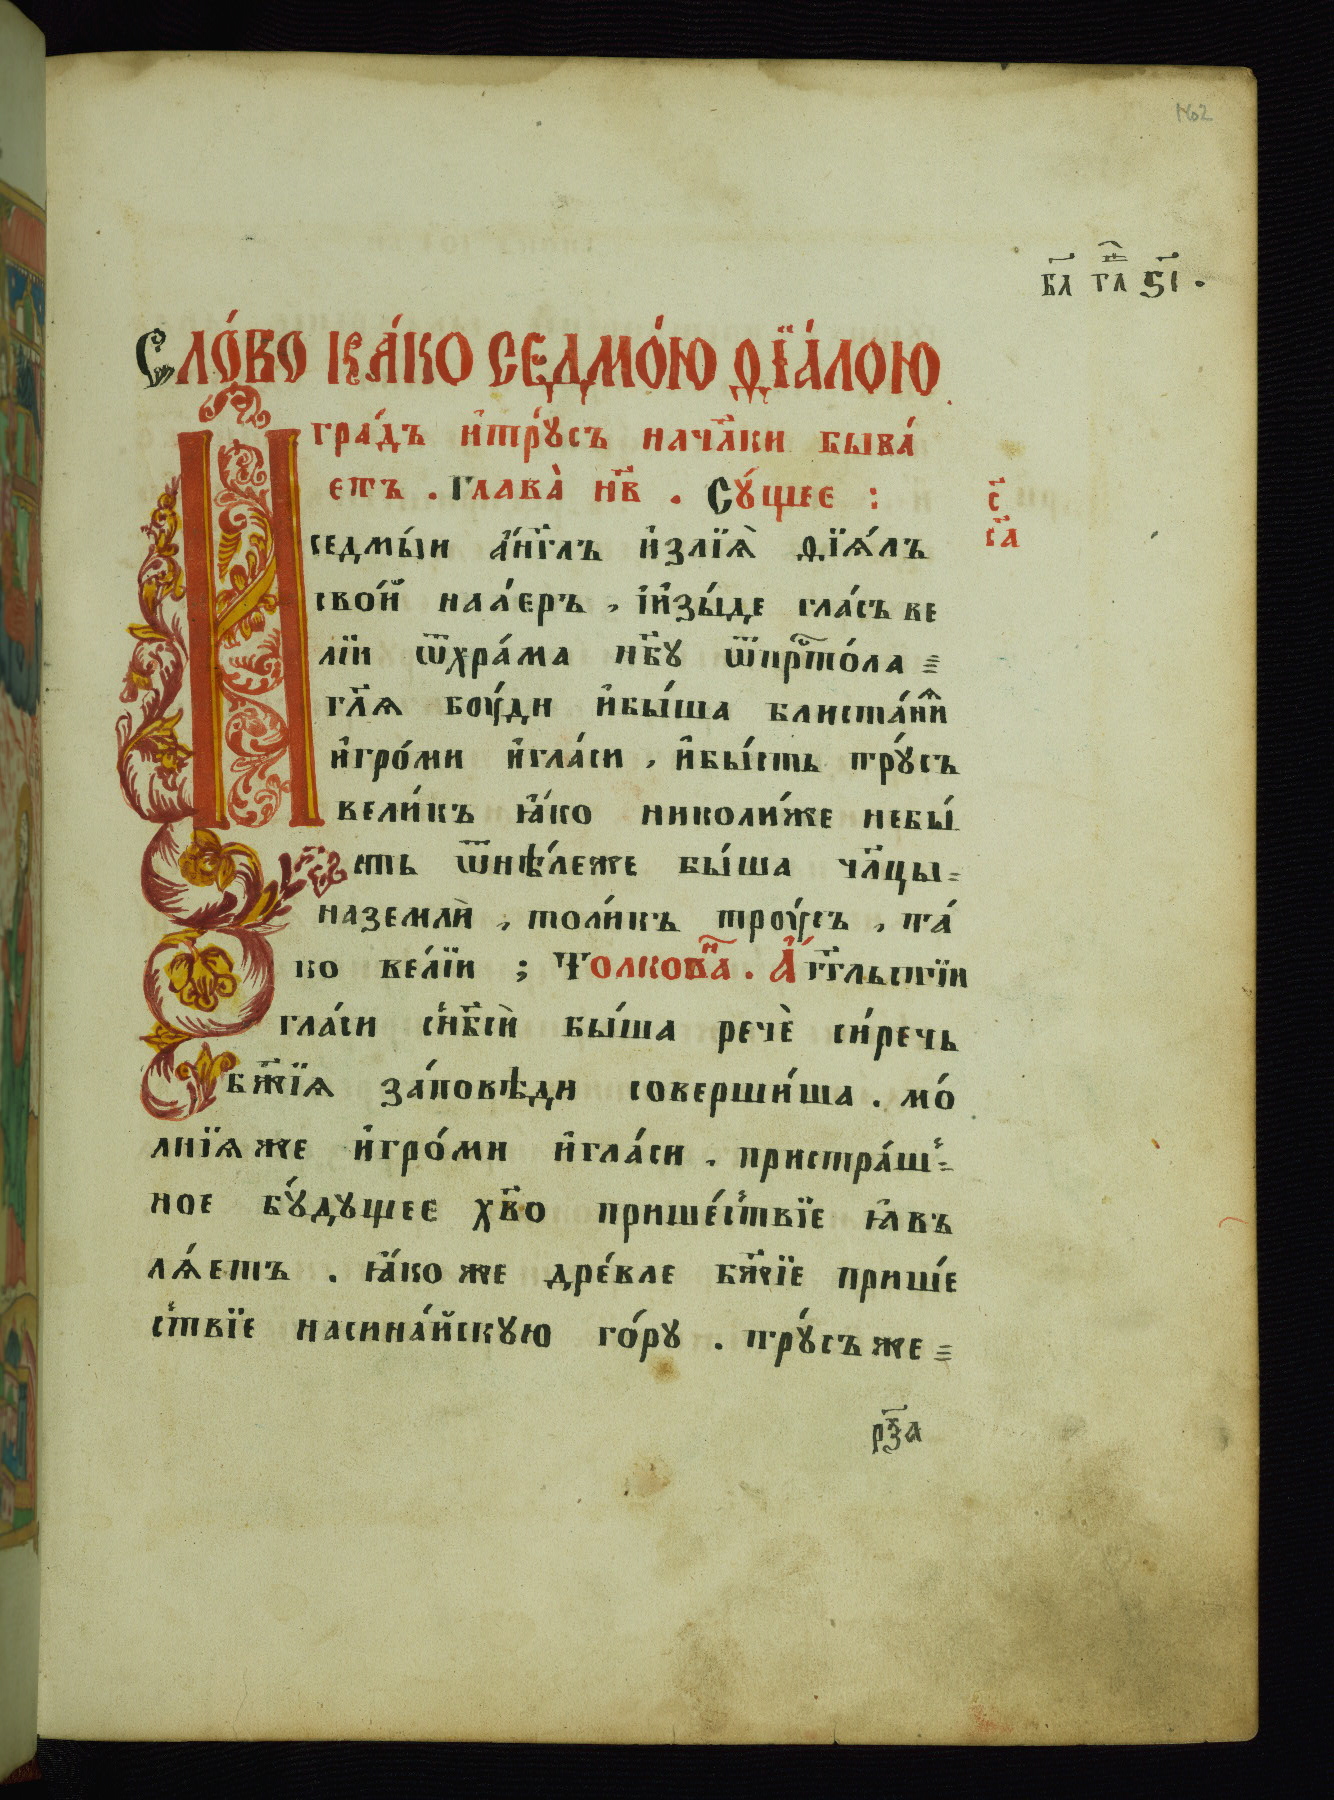 162
в҃л гл҃ ѕ҃і .
Сло́во ка́ко седмо́ю фїа́лою
гра́дъ и҆тру́съ нача́лки быва́
етъ . Глава̀ н҃в . Су́щее :
с҃
с҃а
И седмы́и а҆́нг҃лъ и҆злїѧ̀ фїѧ́лъ
сво́й нале́ръ , і҆и҆зы́де гла́съ ве
лїи ѿхра́ма нб҃у ѿпр҃то́ла =
гл҃ѧ боу́ди и҆бы́ша блиста́нїѧ
и҆гро́ми и҆гла́си , и҆бы́сть тру́съ
вели́къ ꙗ҆́ко николи́же небы́
сть ѿнѣ́леже бы́ша чл҃цы =
наземлѝ , толи́къ троу́съ , та́
ко ве́лїи ; Толкова҃н . А҆́гг҃льстїи
гла́си с̾нб҃сѝ бы́ша речѐ си́речь
бж҃їѧ за́повѣди соверши́ша . мо́
лнїѧже и҆гро́ми и҆гла́си . пристра́ш =
ное бу́дущее хв҃о прише́ствїе ꙗ҆въ
лѧ́етъ . ꙗ҆́коже дре́вле бж҃їе прише́
ствїе насина́йскую го́ру . тру́съже =
рѯ҃а